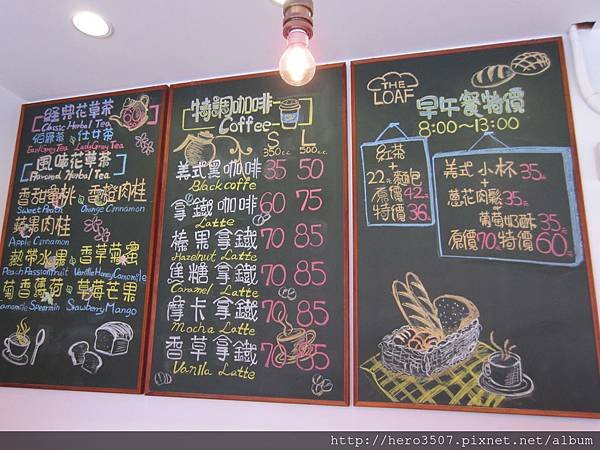 經典花草茶 60
Classic Herbal Tea
伯爵茶 仕女茶
Earl Grey Tea Lady Grey Tea
風味花草茶
Herbal Tea
香甜蜜桃 香橙肉桂
Sweet Peach Orange Cinnamon
蘋果肉桂
Apple Cinnamon
熱帶水果 香草菊蜜
Peach Passionfruit Vanilla Honey Camomile
菊香薄荷 草莓芒果
Camomile Spearmin Strawberry Mango
特調咖啡
Coffee
S L
350cc 500cc
美式黑咖啡 35 50
Black coffe
拿鐵咖啡 60 75
Latte
榛果拿鐵 70 85
Hazelnut Latte
焦糖拿鐵 70 85
Caramel Latte
摩卡拿鐵 70 85
Mocha Latte
香草拿鐵 70 85
Vanilla Latte
THE LOAF
早午餐特價
8:00～13:00
紅茶
22元麵包
原價42元
特價36元
美式小杯35元
+
蔥花肉鬆35元
葡萄奶酥35元
原價70特價60元
http://hero3507.pixnet.net/album